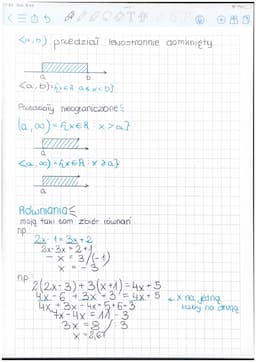 <a,b) przedział lewostronnie domknięty
a b
<a,b)={x∈R a≤x<b}
Przedziały nieograniczone:
(a,∞)={x∈R: x>a}
a
<a,∞)={x∈R: x≥a}
a
Równania:
mają taki sam zbiór równań
np.
2x-1=3x+2
2x-3x=2+1
-x=3/(-1)
x=-3
np.
2(2x-3)+3(x+1)=4x+5
4x-6+3x+3=4x+5 ← x na jedną
4x+3x-4x=5+6-3 liczby na drugą
7x-4x=11-3
3x=8 /:3
x=2,67